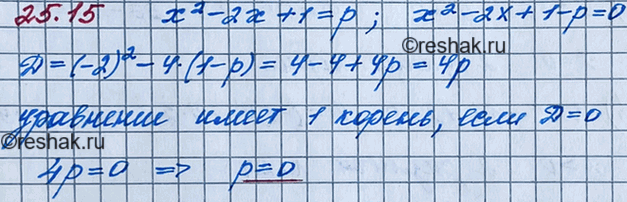 25.15 x² - 2x + 1 = p ; x² - 2x + 1 - p = 0
©Reshak.ru
Д = (-2)² - 4·(1-p) = 4 - 4 + 4p = 4p
уравнение имеет 1 корень, если Д = 0
©Reshak.ru
4p = 0 => p = 0